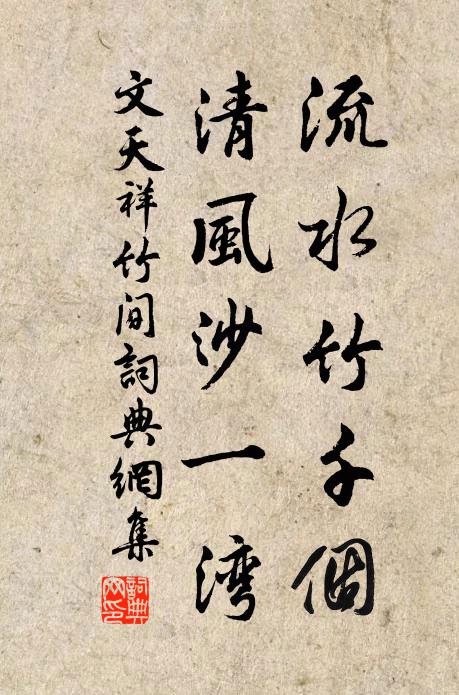 流水竹千個
清風沙一灣
文天祥竹間詞典網集
詞典網印